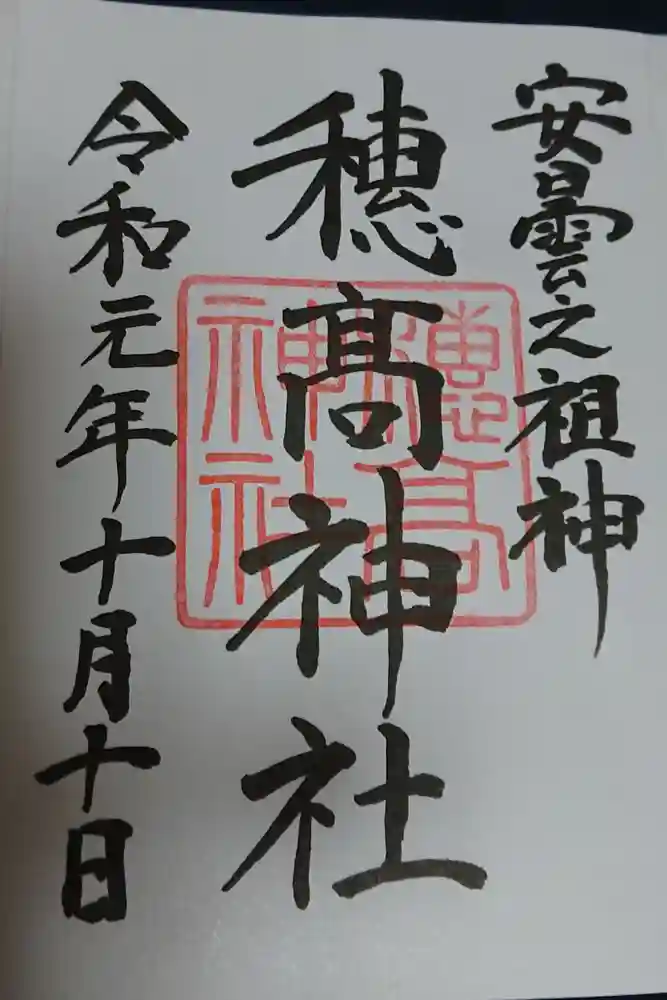 安曇之祖神
穂髙神社
穗高神社
令和元年十月十日